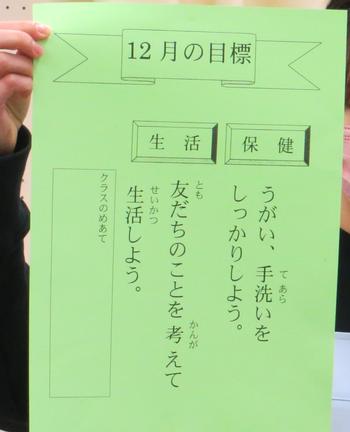 12月の目標
保健
うがい、手洗いを
てあら
しっかりしよう。
生活
友だちのことを考えて
とも
かんが
生活しよう。
せいかつ
クラスのめあて